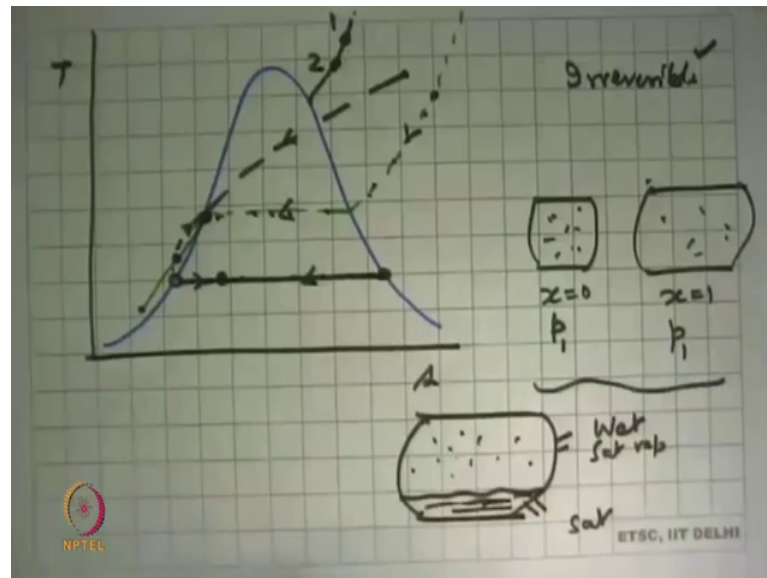 T
1
2
Irreversible ✓
x=0
x=1
p₁
p₁
s
Wet
Sat vap
Sat
NPTEL
ETSC, IIT DELHI